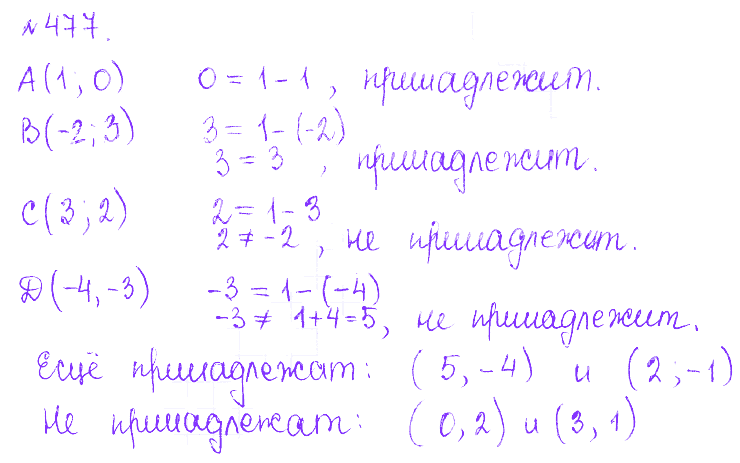 №477.
A(1; 0) 0 = 1 - 1, принадлежит.
B(-2; 3) 3 = 1 - (-2)
3 = 3, принадлежит.
C(3; 2) 2 = 1 - 3
2 ≠ -2, не принадлежит.
D(-4, -3) -3 = 1 - (-4)
-3 ≠ 1+4=5, не принадлежит.
Ещё принадлежат: (5, -4) и (2; -1)
Не принадлежат: (0, 2) и (3, 1)